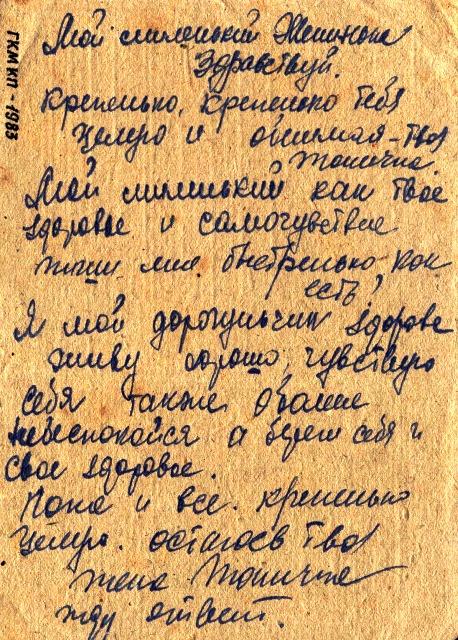 ГКМ КП - 1983
Мой миленький Женичка
Здравствуй.
Крепенько, крепенько тебя
целую и обнимая - твоя
Тоничка.
Мой милинький как твое
здоровье и самочувствие
пиши мне быстренько как
есть,
Я мой дорогунчик здорова
живу хорошо, чувствую
себя также. Обо мне
небеспокойся а береги себя и
свое здоровое.
Пока и все. крепенько
целую. остаюсь твоя
жена Тоничка
жду ответ.